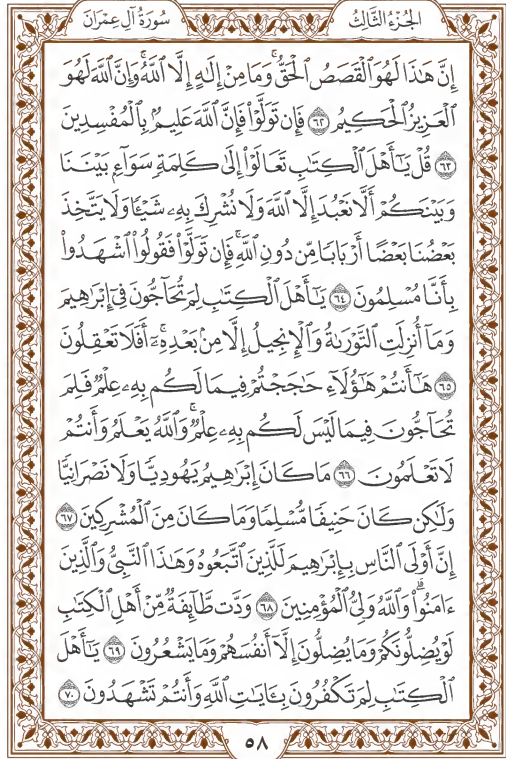 سُورَةُ آلِ عِمْرَانَ
الجُزْءُ الثَّالِثُ
إِنَّ هَٰذَا لَهُوَ ٱلْقَصَصُ ٱلْحَقُّ ۚ وَمَا مِنْ إِلَٰهٍ إِلَّا ٱللَّهُ ۚ وَإِنَّ ٱللَّهَ لَهُوَ
ٱلْعَزِيزُ ٱلْحَكِيمُ ٦٢ فَإِن تَوَلَّوْا۟ فَإِنَّ ٱللَّهَ عَلِيمٌۢ بِٱلْمُفْسِدِينَ
٦٣ قُلْ يَٰٓأَهْلَ ٱلْكِتَٰبِ تَعَالَوْا۟ إِلَىٰ كَلِمَةٍ سَوَآءٍۭ بَيْنَنَا
وَبَيْنَكُمْ أَلَّا نَعْبُدَ إِلَّا ٱللَّهَ وَلَا نُشْرِكَ بِهِۦ شَيْـًٔا وَلَا يَتَّخِذَ
بَعْضُنَا بَعْضًا أَرْبَابًا مِّن دُونِ ٱللَّهِ ۚ فَإِن تَوَلَّوْا۟ فَقُولُوا۟ ٱشْهَدُوا۟
بِأَنَّا مُسْلِمُونَ ٦٤ يَٰٓأَهْلَ ٱلْكِتَٰبِ لِمَ تُحَآجُّونَ فِىٓ إِبْرَٰهِيمَ
وَمَآ أُنزِلَتِ ٱلتَّوْرَىٰةُ وَٱلْإِنجِيلُ إِلَّا مِنۢ بَعْدِهِۦٓ ۚ أَفَلَا تَعْقِلُونَ
٦٥ هَٰٓأَنتُمْ هَٰٓؤُلَآءِ حَٰجَجْتُمْ فِيمَا لَكُم بِهِۦ عِلْمٌ فَلِمَ
تُحَآجُّونَ فِيمَا لَيْسَ لَكُم بِهِۦ عِلْمٌ ۚ وَٱللَّهُ يَعْلَمُ وَأَنتُمْ
لَا تَعْلَمُونَ ٦٦ مَا كَانَ إِبْرَٰهِيمُ يَهُودِيًّا وَلَا نَصْرَانِيًّا
وَلَٰكِن كَانَ حَنِيفًا مُّسْلِمًا وَمَا كَانَ مِنَ ٱلْمُشْرِكِينَ ٦٧
إِنَّ أَوْلَى ٱلنَّاسِ بِإِبْرَٰهِيمَ لَلَّذِينَ ٱتَّبَعُوهُ وَهَٰذَا ٱلنَّبِىُّ وَٱلَّذِينَ
ءَامَنُوا۟ ۗ وَٱللَّهُ وَلِىُّ ٱلْمُؤْمِنِينَ ٦٨ وَدَّت طَّآئِفَةٌ مِّنْ أَهْلِ ٱلْكِتَٰبِ
لَوْ يُضِلُّونَكُمْ وَمَا يُضِلُّونَ إِلَّآ أَنفُسَهُمْ وَمَا يَشْعُرُونَ ٦٩ يَٰٓأَهْلَ
ٱلْكِتَٰبِ لِمَ تَكْفُرُونَ بِـَٔايَٰتِ ٱللَّهِ وَأَنتُمْ تَشْهَدُونَ ٧٠
٥٨